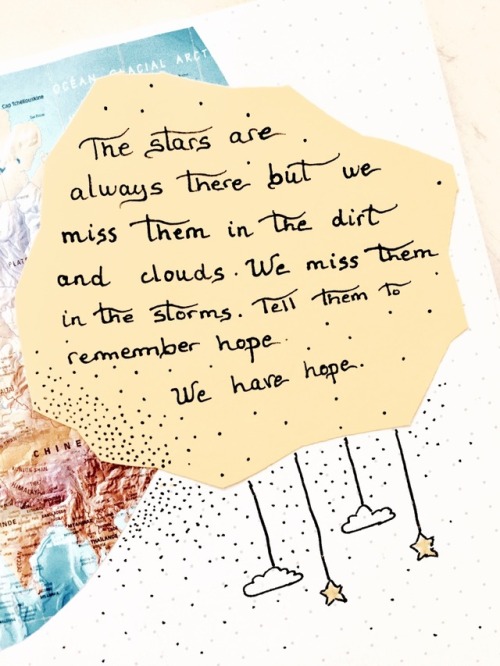 OCÉAN GLACIAL ARCT
Cap Tchéliouskine
The stars are
always there but we
miss them in the dirt
and clouds. We miss them
in the storms. Tell them to
remember hope.
We have hope.
CHINE
THAÏLANDE